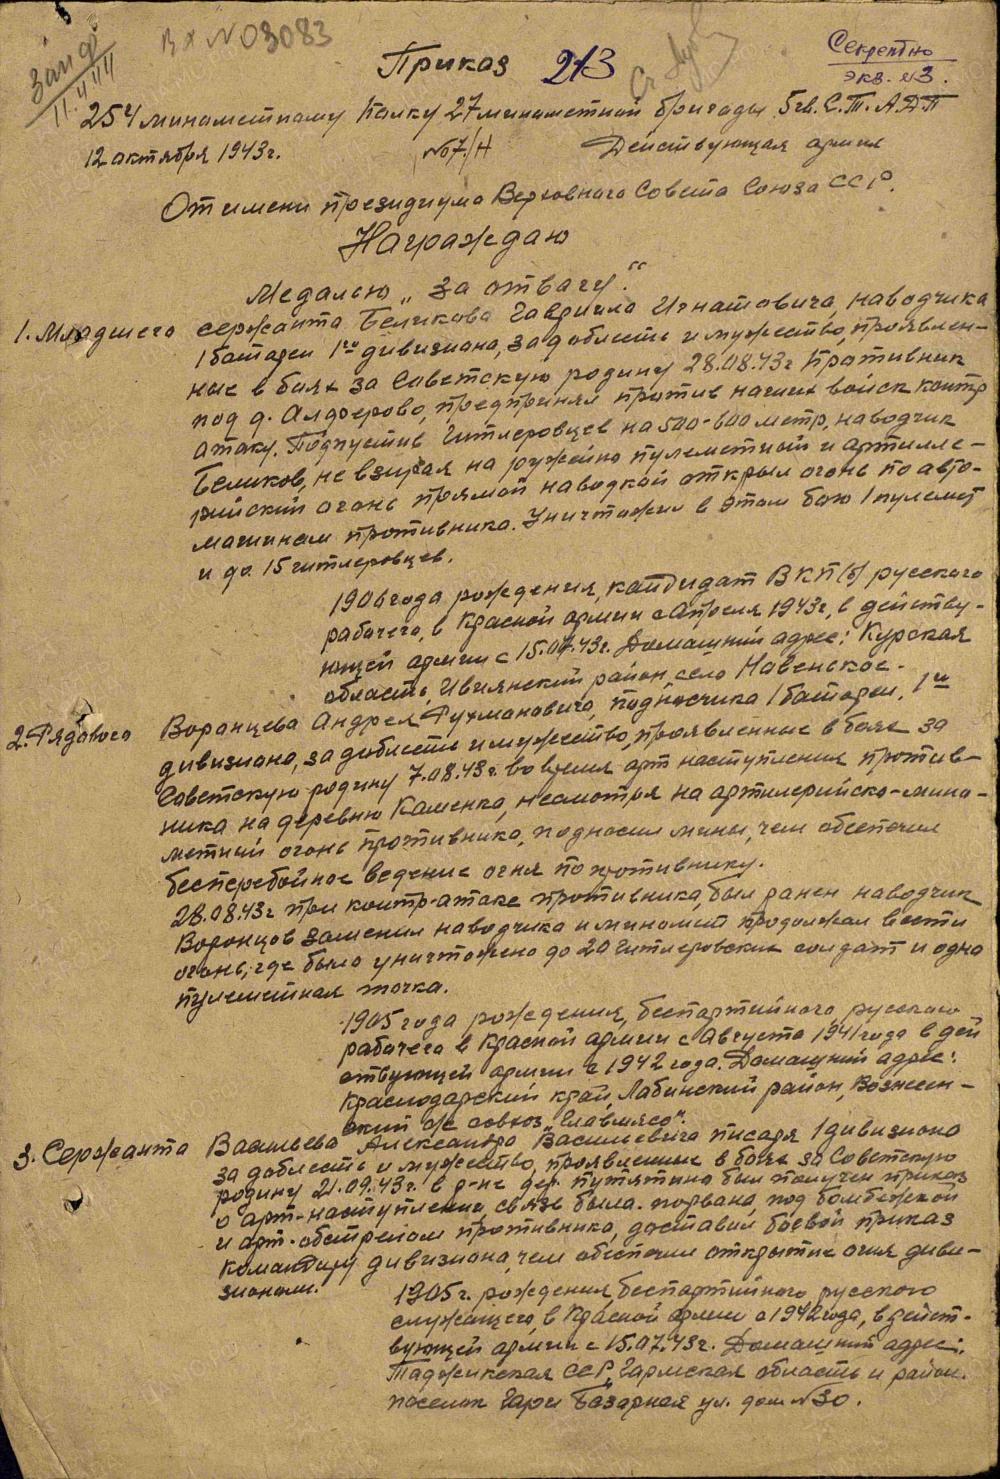 Вх №03083
Приказ 213
Секретно
экз. №3.
254 минометному полку 27 минометной бригады 5 гв. С. Т. А. Д П
12 октября 1943г. №07/Н Действующая армия
От имени президиума Верховного Совета Союза ССР.
Награждаю
Медалью „За отвагу":
1. Младшего сержанта Беликова Гавриила Игнатовича, наводчика
1 батареи 1го дивизиона, за доблесть и мужество, проявлен-
ные в боях за Советскую родину 28.08.43г противник
под д. Алферово, предпринял против наших войск контр
атаку. Подпустив Гитлеровцев на 500-600 метр, наводчик
Беликов, не взирая на ружейно пулеметный и артилле-
рийский огонь прямой наводкой открыл огонь по авто-
машинам противника. Уничтожил в этом бою 1 пулемет
и до 15 гитлеровцев.
1906 года рождения, кандидат ВКП(б) русского
рабочего, в Красной армии с Апреля 1943г, в действу-
ющей армии с 15.07.43г. Домашний адрес: Курская
область, Ивнянский район, село Навенское.
2. Рядового Воронцева Андрея подносчика 1 батареи, 1го
дивизиона, за доблесть и мужество, проявленные в боях за
Советскую родину 7.08.43г. во время арт наступления против-
ника на деревню Каменка, несмотря на артилерийско-мино-
метный огонь противника, подносил мины, чем обеспечил
бесперебойное ведение огня по противнику.
28.08.43г при контр-атаке противника, был ранен наводчик
Воронцов заменил наводчика и миномет продолжал вести
огонь, где было уничтожено до 20 Гитлеровских солдат и одна
пулеметная точка.
1905 года рождения, беспартийного, русского
рабочего в Красной армии с Августа 1941 года в дей
ствующей армии с 1942 года. Домашний адрес:
Краснодарский край, Лабинский район, Вознесен-
ский совхоз „Главмясо".
3. Сержанта Васильева Александра Васильевича писаря 1 дивизиона
за доблесть и мужество, проявленные в боях за Советскую
родину 21.09.43г. в р-не дер. Путятино был получен приказ
о арт-наступлении, связь была порвана, под бомбежкой
и арт-обстрелом противника, доставил боевой приказ
командиру дивизиона, чем обеспечил открытие огня диви-
зионом.
1905г. рождения, беспартийного, русского
служащего, в Красной Армии с 1942 года, в дейст-
вующей армии с 15.07.43г. Домашний адрес:
Таджикская ССР, Гармская область и район.
поселок Гарм Базарная ул. дом №30.